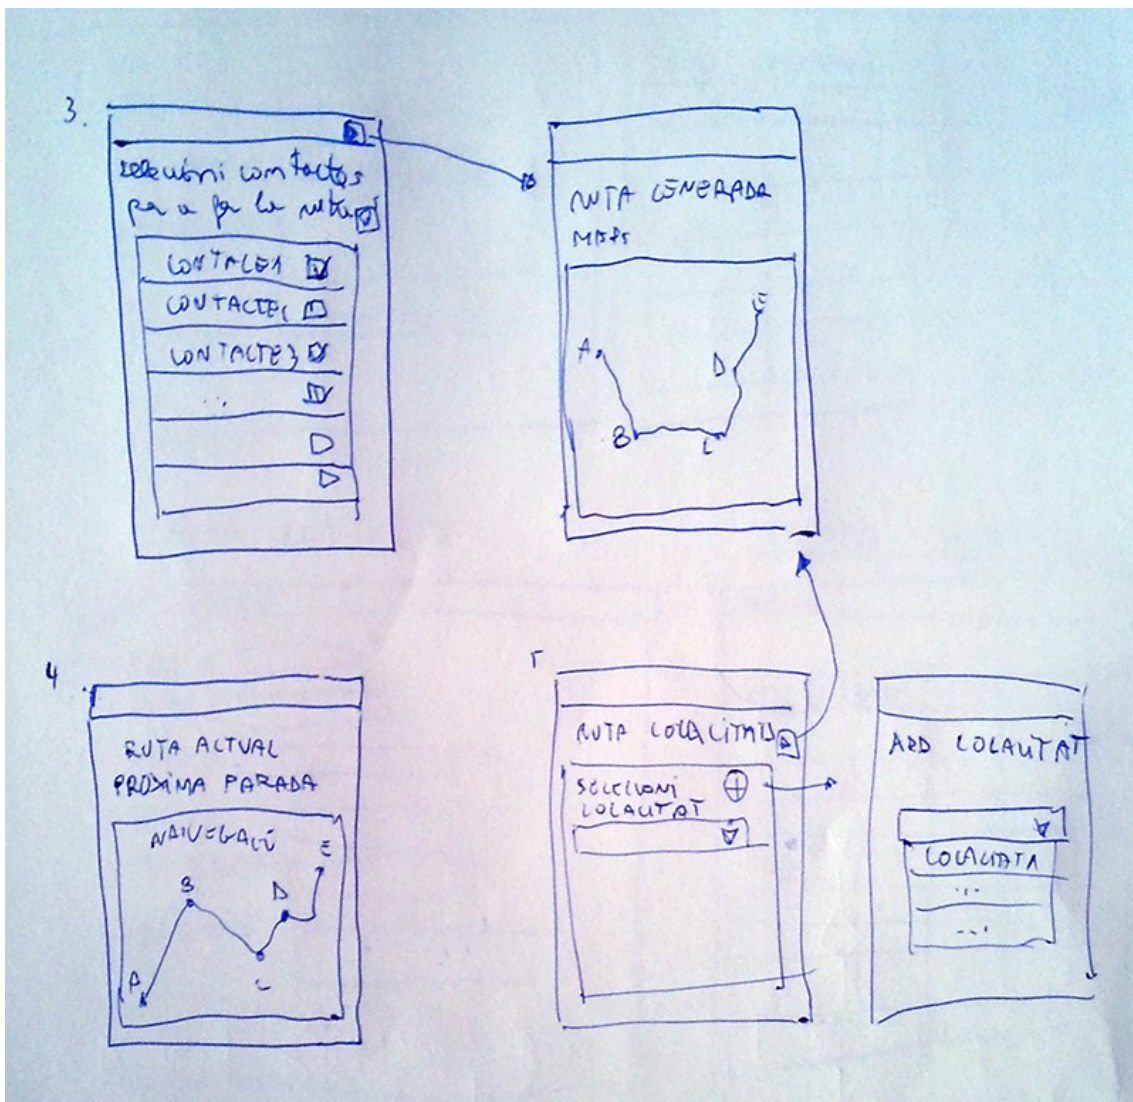 3.
selecioni contactes
per a fer la ruta
CONTACTE1
CONTACTE
CONTACTE3
...
RUTA GENERADA
MAPS
A
B
C
D
E
4
RUTA ACTUAL
PROXIMA PARADA
NAIVEGACIÓ
A
B
C
D
E
5
RUTA LOCALITATS
SELECIONI
LOCALITAT
ADD LOCALITAT
LOCALITATA
...
...